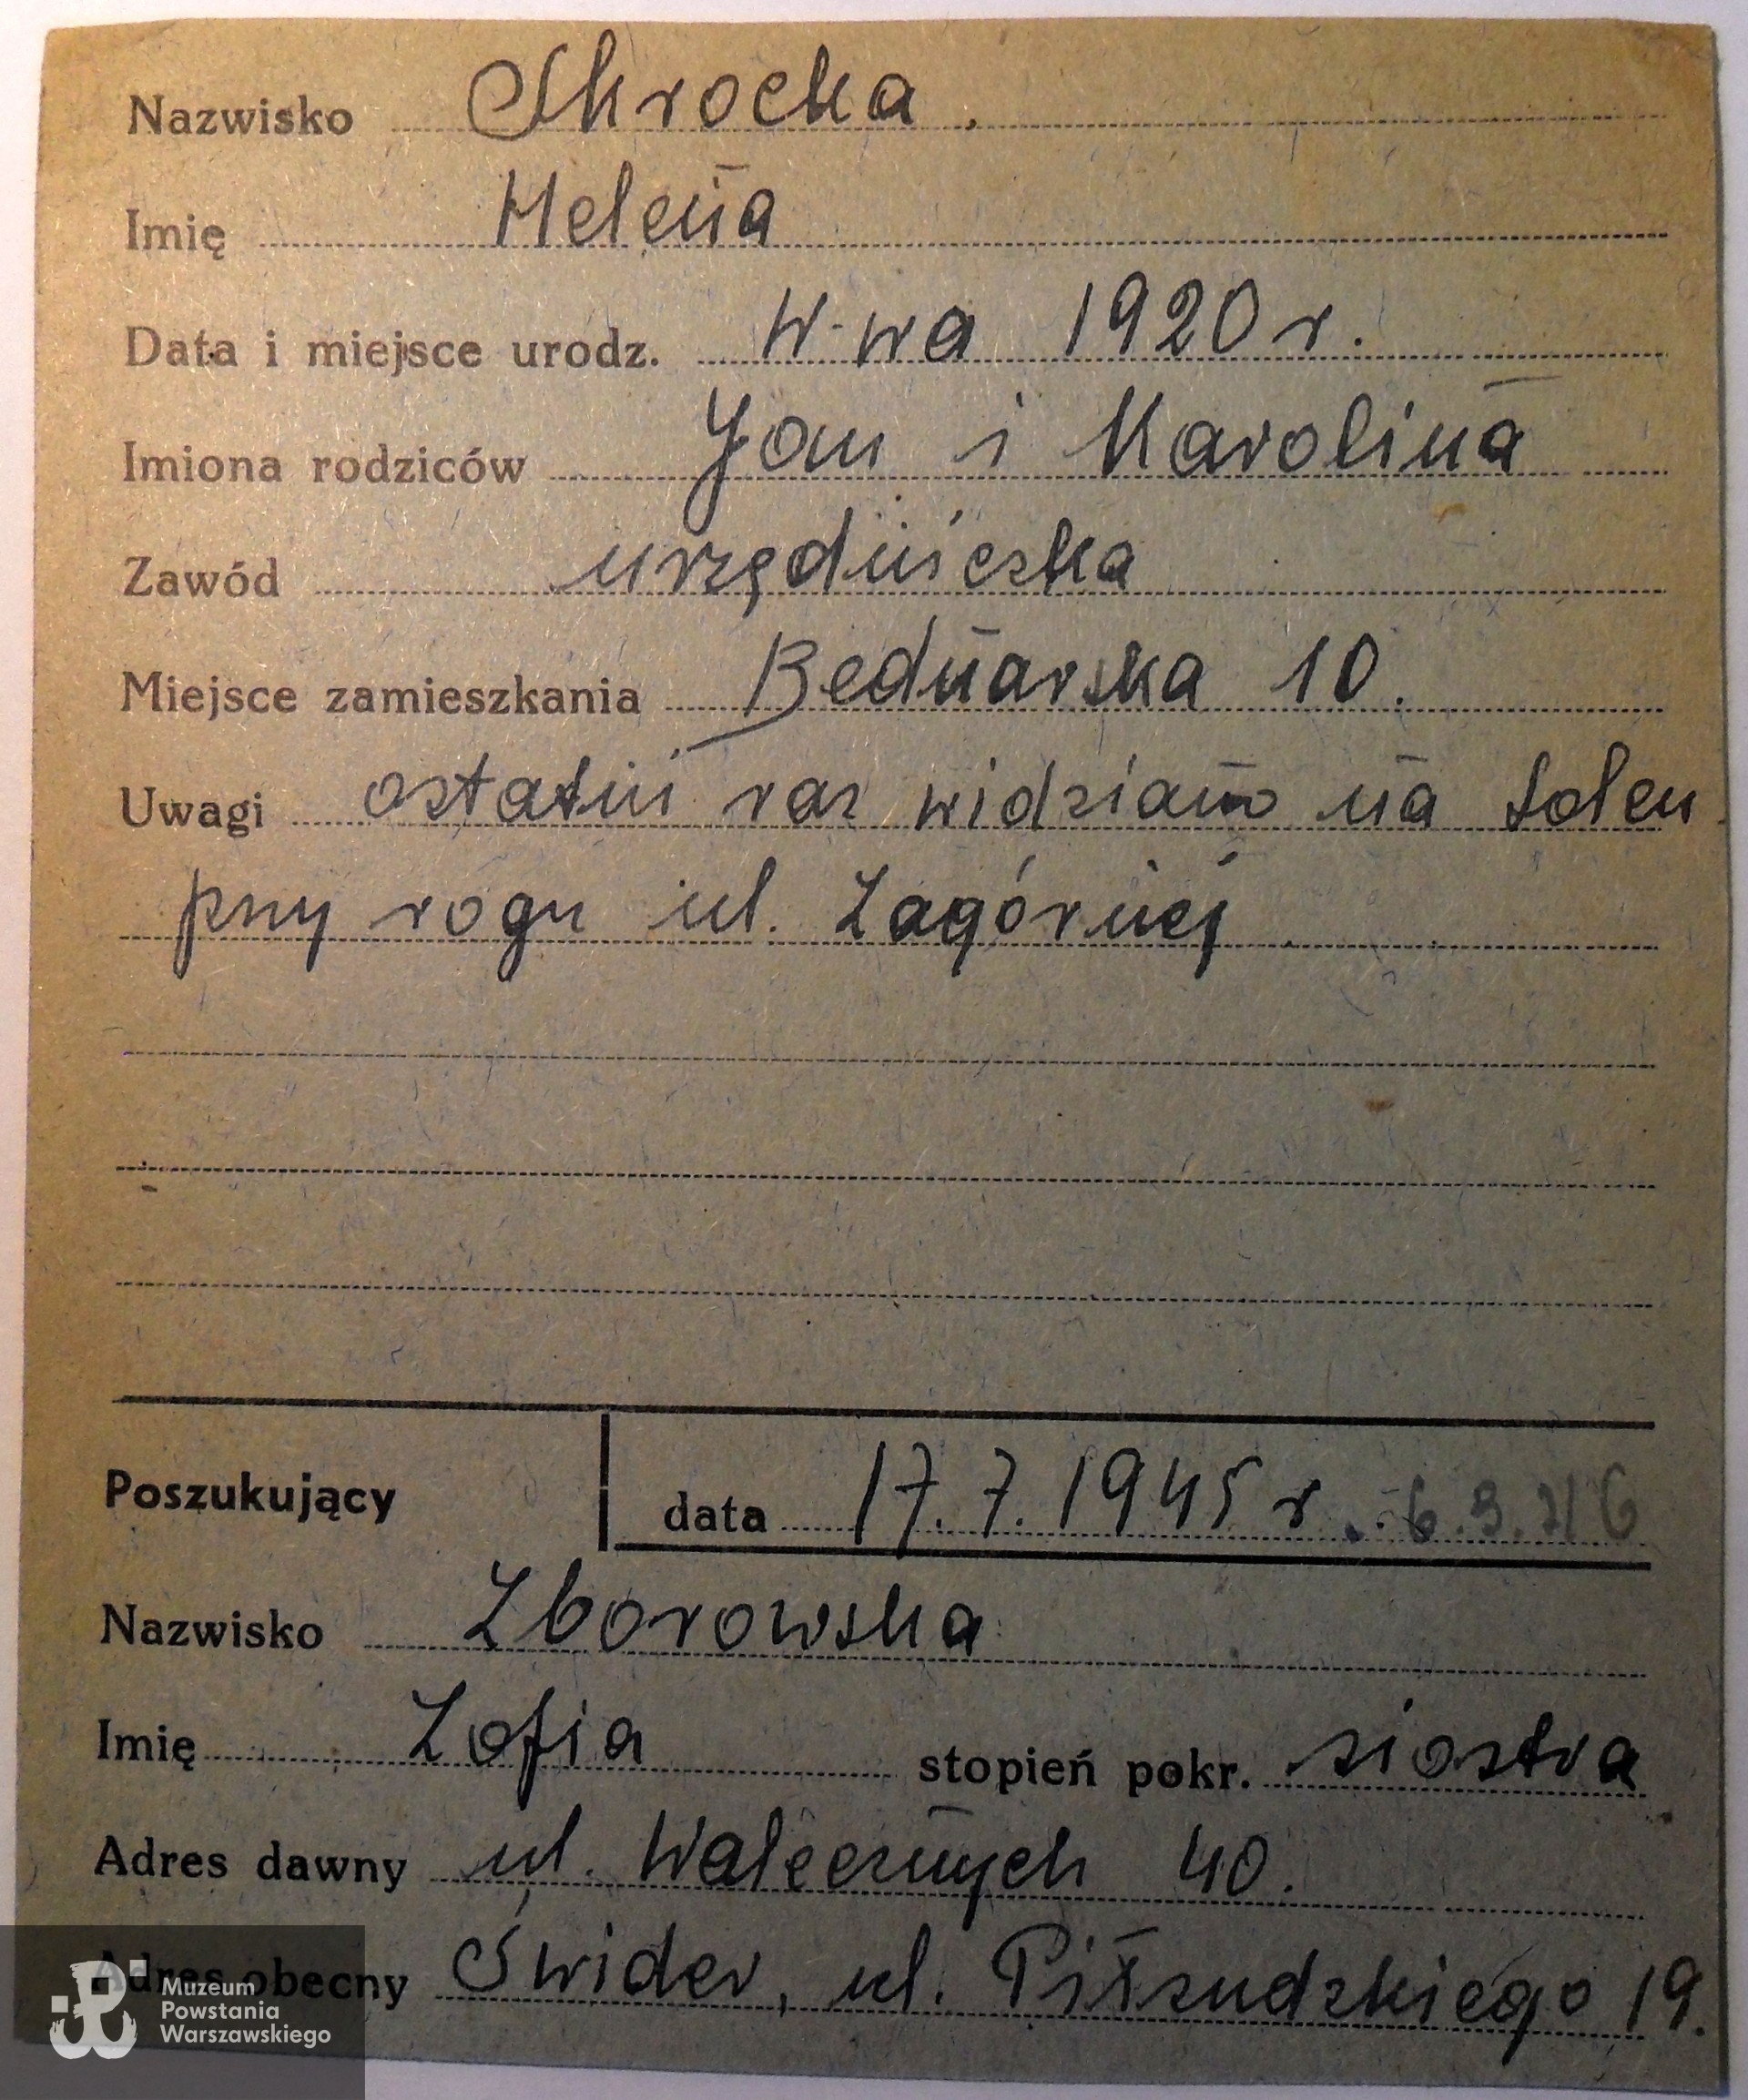 Nazwisko Skrocka.
Imię Helena
Data i miejsce urodz. W-wa 1920 r.
Imiona rodziców Jan i Karolina
Zawód urzędniczka
Miejsce zamieszkania Bednarska 10.
Uwagi ostatni raz widziano na Solcu
przy rogu ul. Zagórnej
Poszukujący data 17.7.1945 r.
Nazwisko Zborowska
Imię Zofia stopień pokr. siostra
Adres dawny ul. Walecznych 40.
Adres obecny Świder, ul. Piłsudskiego 19.
Muzeum
Powstania
Warszawskiego